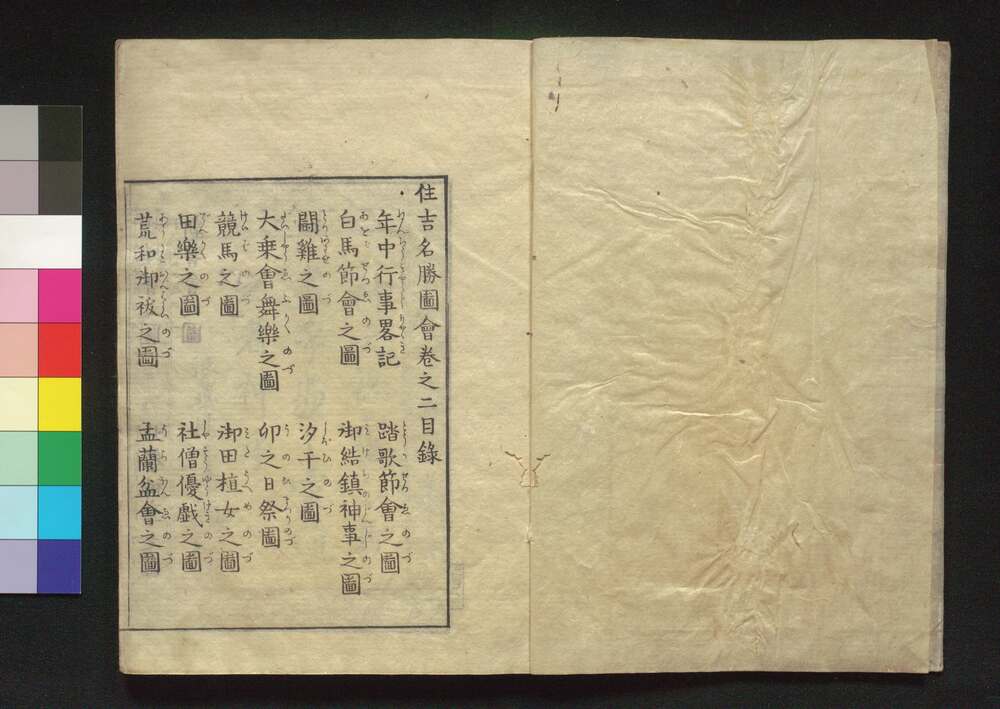 住吉名勝圖會卷之二目錄
年中行事畧記
踏歌節會之圖
白馬節會之圖
御結鎮神事之圖
鬪雞之圖
汐干之圖
大乗會舞樂之圖
卯之日祭圖
競馬之圖
御田植女之圖
田樂之圖
社僧優戯之圖
荒和御祓之圖
盂蘭盆會之圖